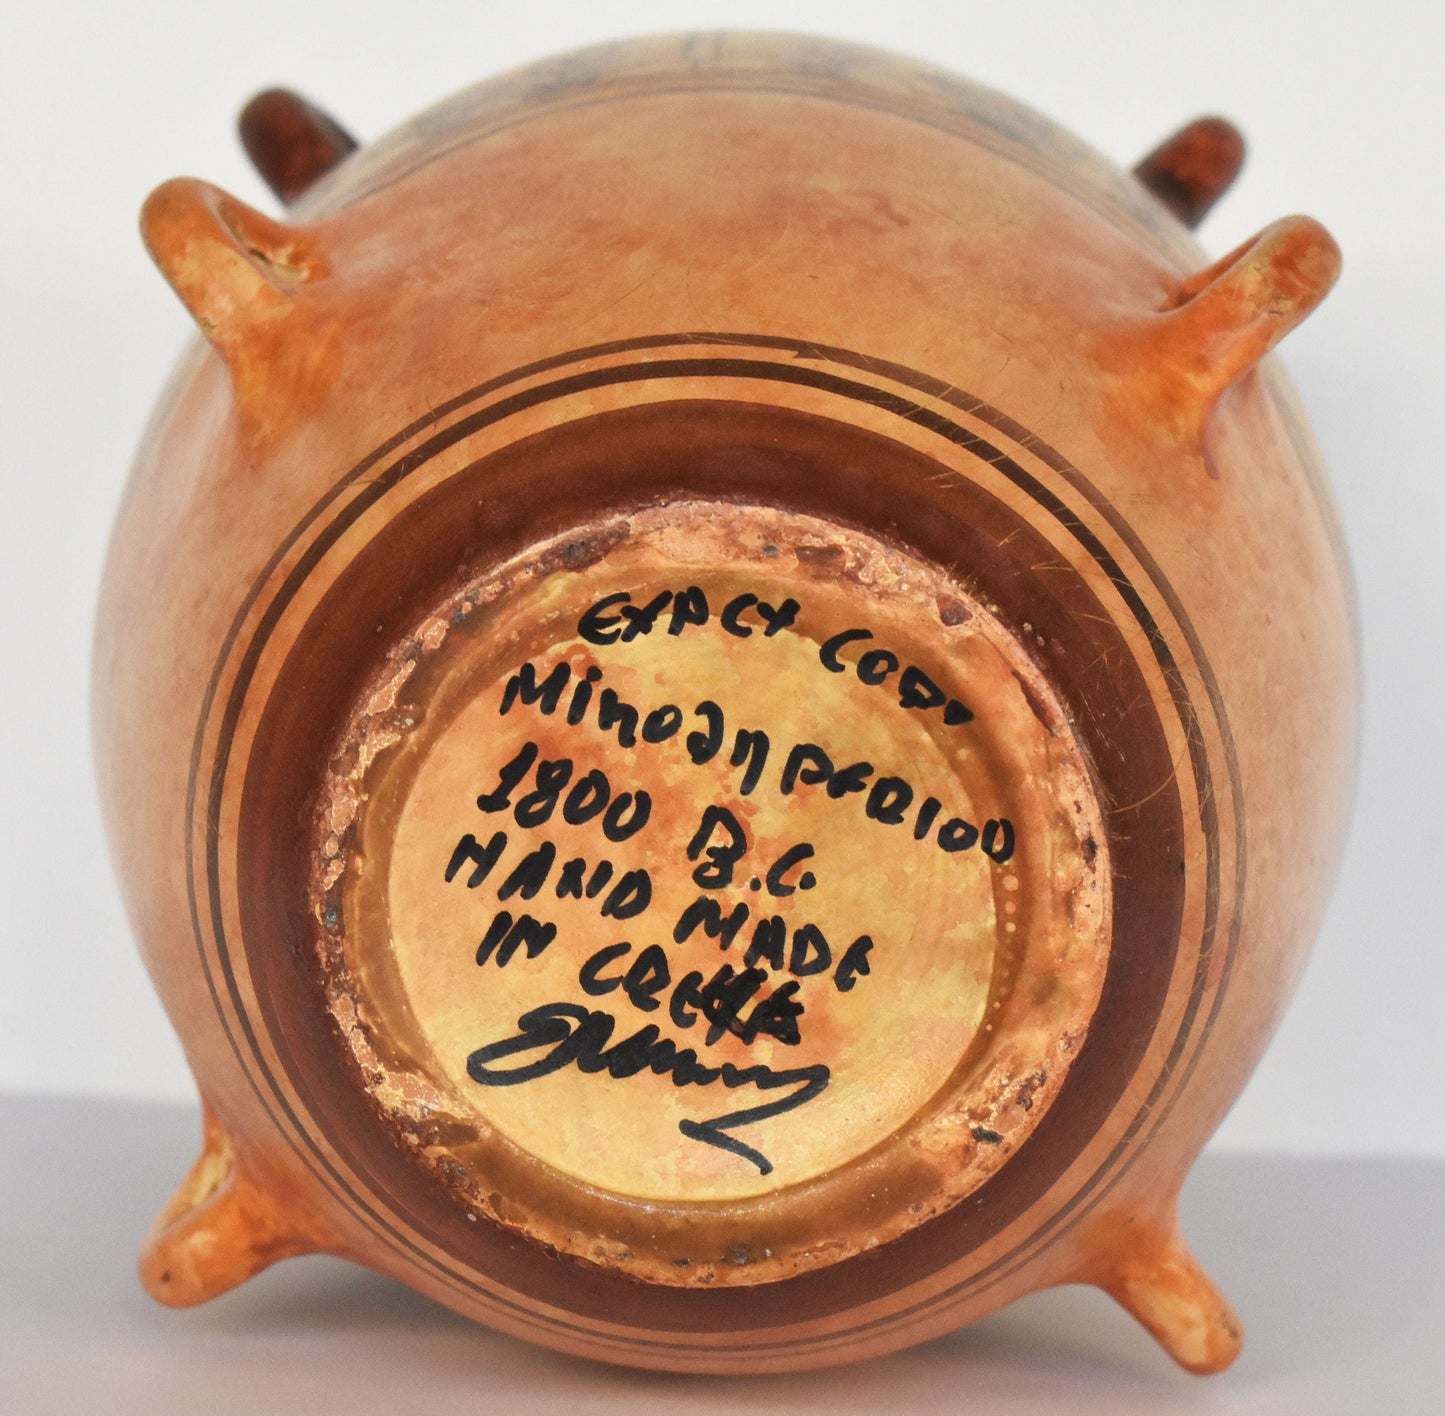 EXACT COPY
Minoan PERIOD
1800 B.C.
HAND MADE
IN CREEKE